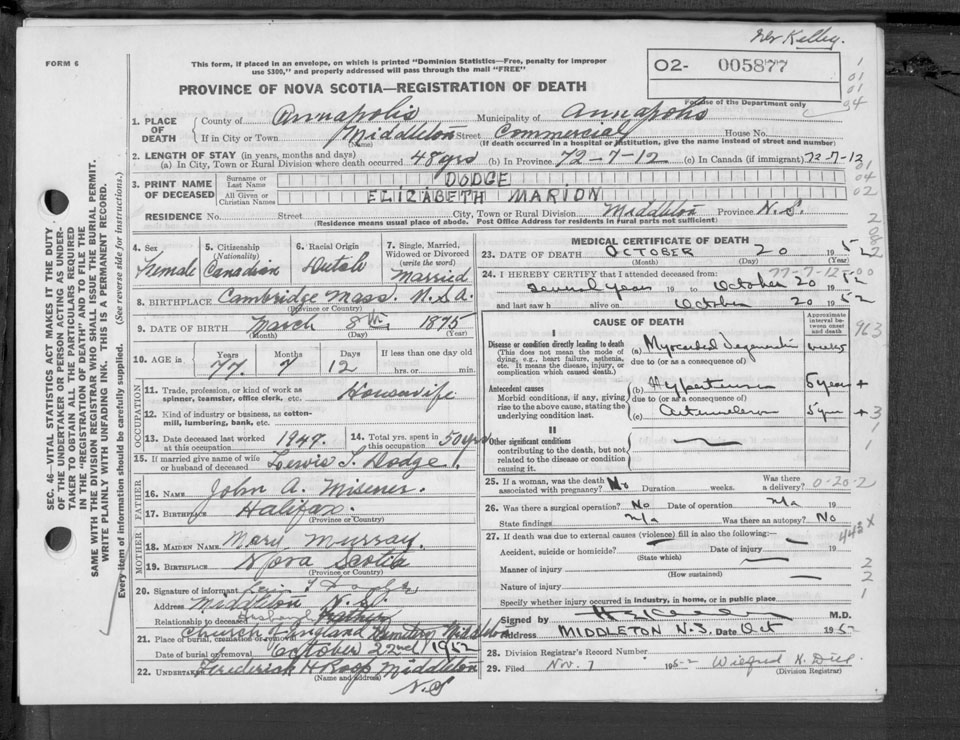 Kelley.
FORM 6
This form, if placed in an envelope, on which is printed "Dominion Statistics—Free, penalty for improper
use $300," and properly addressed will pass through the mail "FREE"
O2- 005877
For use of the Department only
1
01
01
94
PROVINCE OF NOVA SCOTIA—REGISTRATION OF DEATH
1. PLACE OF DEATH County of Annapolis Municipality of Annapolis
If in City or Town Middleton Street Commercial House No.
(Name) (If death occurred in a hospital or institution, give name instead of street and number)
2. LENGTH OF STAY (in years, months and days)
(a) In City, Town or Rural Division where death occurred 48 yrs (b) In Province 72-7-12 (c) In Canada (if immigrant) 72-7-12
3. PRINT NAME OF DECEASED Surname or Last Name DODGE
All Given or Christian Names ELIZABETH MARION
RESIDENCE No. Street City, Town or Rural Division Middleton Province N.S.
(Residence means usual place of abode. Post Office Address for residents in rural parts not sufficient)
SEC. 46—VITAL STATISTICS ACT MAKES IT THE DUTY
OF THE UNDERTAKER OR PERSON ACTING AS UNDER-
TAKER TO OBTAIN ALL THE PARTICULARS REQUIRED
IN THE "REGISTRATION OF DEATH" AND TO FILE THE
SAME WITH THE DIVISION REGISTRAR WHO SHALL ISSUE THE BURIAL PERMIT.
WRITE PLAINLY WITH UNFADING INK. THIS IS A PERMANENT RECORD.
Every item of information should be carefully supplied. (See reverse side for instructions.)
4. Sex Female
5. Citizenship (Nationality) Canadian
6. Racial Origin Dutch
7. Single, Married, Widowed or Divorced (write the word) Married
8. BIRTHPLACE Cambridge Mass. U.S.A.
(Province or Country)
9. DATE OF BIRTH March 8th 1875
(Month) (Day) (Year)
10. AGE in Years 77 Months 7 Days 12 If less than one day old
hrs. or min.
OCCUPATION
11. Trade, profession, or kind of work as
spinner, teamster, office clerk, etc. Housewife
12. Kind of industry or business, as cotton-
mill, lumbering, bank, etc.
13. Date deceased last worked at this occupation 1947. 14. Total yrs. spent in this occupation 50 yrs
15. If married give name of wife
or husband of deceased Lewis Dodge
FATHER
16. NAME John A. Misener.
17. BIRTHPLACE Halifax.
(Province or Country)
MOTHER
18. MAIDEN NAME Mary Murray.
19. BIRTHPLACE Nova Scotia
(Province or Country)
20. Signature of informant
Address Middleton N.S.
Relationship to deceased Husband
21. Place of burial, cremation or removal Church of England Cemetery Middleton
Date of burial or removal October 22nd 1952
22. UNDERTAKER Frederick H Roop Middleton
(Name and address) N.S
MEDICAL CERTIFICATE OF DEATH
23. DATE OF DEATH OCTOBER 20 1952
(Month) (Day) (Year)
77-7-12-00
24. I HEREBY CERTIFY that I attended deceased from:
several years 19 to October 20 1952
and last saw h alive on October 20 1952
CAUSE OF DEATH
Approximate interval between onset and death
I
Disease or condition directly leading to death
(This does not mean the mode of
dying, e.g., heart failure, asthenia,
etc. It means the disease, injury, or
complication which caused death.)
(a) Myocardial Degeneration weeks
due to (or as a consequence of)
Antecedent causes
Morbid conditions, if any, giving
rise to the above cause, stating the
underlying condition last.
(b) Hypertension 5 years +
due to (or as a consequence of)
(c) 5 years +
II
Other significant conditions
contributing to the death, but not
related to the disease or condition
causing it.
25. If a woman, was the death
associated with pregnancy? No Duration weeks. Was there a delivery?
0-20-2
26. Was there a surgical operation? No Date of operation n/a 19
State findings n/a Was there an autopsy? No
27. If death was due to external causes (violence) fill in also the following:—
Accident, suicide or homicide? Date of injury 19
(State which)
Manner of injury
(How sustained)
Nature of injury
Specify whether injury occurred in industry, in home, or in public place
Signed by M.D.
Address MIDDLETON N.S. Date Oct 1952
28. Division Registrar's Record Number
29. Filed Nov. 7 1952
(Division Registrar)